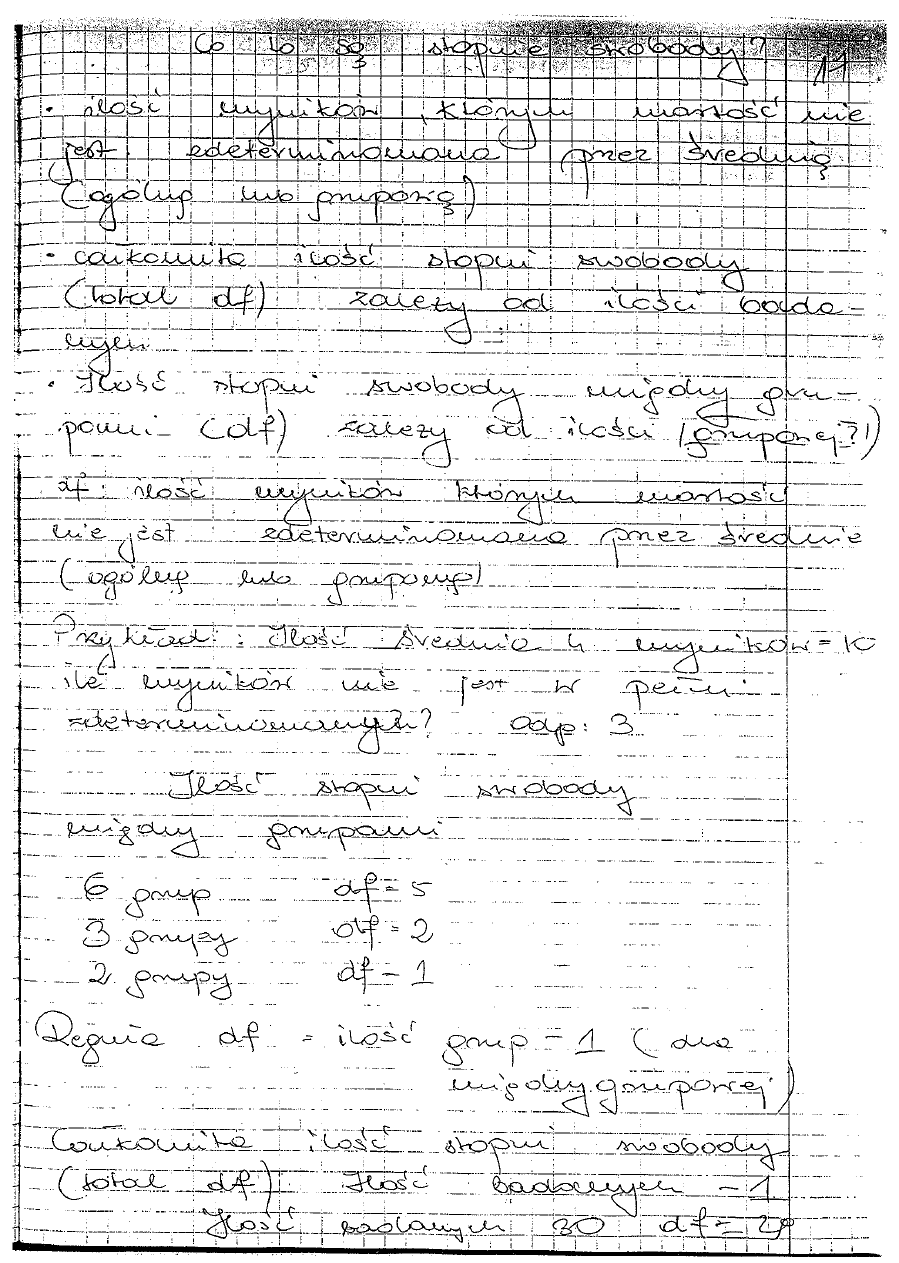 Co to są stopnie swobody? 11
• ilość wyników, których wartość nie
jest zdeterminowana przez średnią
(ogólną lub grupową)
• całkowita ilość stopni swobody
(total df) zależy od ilości bada-
nych
• Ilość stopni swobody między gru-
pami - (df) zależy od ilości (grupowej?!)
df: ilość wyników których wartość
nie jest zdeterminowana przez średnie
(ogólną lub grupową)
Przykład: Ilość średnia 4 wyników = 10
ile wyników nie jest w pełni
zdeterminowanych? odp: 3
Ilość stopni swobody
między grupami
6 grup df = 5
3 grupy df = 2
2 grupy df - 1
Reguła df = ilość grup - 1 (dla
międzygrupowej)
Całkowita ilość stopni swobody
(total df) Ilość badanych - 1
Ilość badanych 30 df = 29